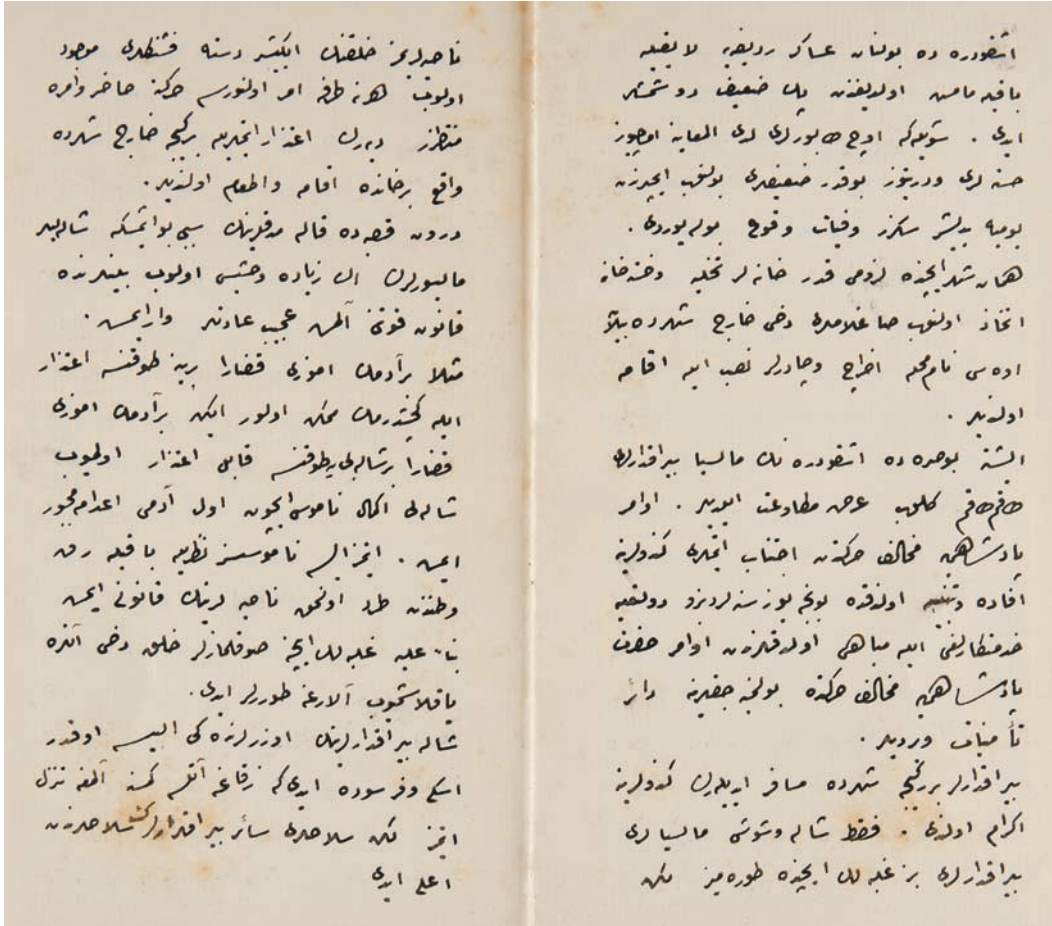 اشقودره ده بولنان عساكر رديفه لا يقيله
باقيله مامش اولديغندن پك ضعيف دوشمشلر
ايدى . شويله كه اوچ طابورلرى لدى المعاينه
خسته لرى ودرتيوز بوقدر ضعيفلرى بولنوب ايچلرندن
يوميه يديشر سكزر وفيات وقوع بوليوردى .
همان شهر ايچنده لزومى قدر خانه لر تخليه وخسته خانه
اتخاذ اولنوب صاغلاملرى دخى خارج شهرده
اوه سى نام محله اخراج وچادرلر نصب ايله اقامه
اولنديلر .
ايشته بو صره ده اشقودره نك مالسيا بيراقدارلرى
طاقم طاقم كلوب عرض مطاوعت ايلديلر . اوامر
پادشاهى يه مخالف حركتدن اجتناب ايتملرى كندولرينه
افاده وتنبيه اولندقده بونجه يوز سنه لردنبرو دولت عليه
خدمتكارلغى ايله مباهى اولدقلرندن اوامر حضرت
پادشاهى يه مخالف حركتده بولنميه جقلرينه دائر
تأمينات ويرديلر .
بيراقدارلر بر گيجه شهرده مسافر ايديله رك كندولرينه
اكرام اولندى . فقط شاله وشوشى مالسيالرى
بيراقدارلرى بز غلبه لك ايچنده طوره ميز لكن
ناحيه لريمز خلقنك ايكيشر دسته فشنكلرى موجود
اولوب هر نه طرفه امر اولنورسه حركته حاضر وامره
منتظرز ديه رك اعتذار ايتملريله بر گيجه خارج شهرده
واقع بر خانده اقامه واطعام اولنديلر .
درون قصبه ده قاله مدقلرينك سببى بو ايمشكه شاله ليلر
ماليسورلرك اك زياده وحشيسى اولوب بينلرنده
قانون قوتنى آلمش عجيب عادتلر وار ايمش .
مثلا بر آدمك اموزى قضارا برينه طوقنسه اعتذار
ايله گچيشدرمك ممكن اولور ايكن بر آدمك اموزى
قضارا بر شاله لى يه طوقنسه قابل اعتذار اولميوب
شاله لى اكمال ناموسى ايچون اول آدمى اعدامه مجبور
ايمش . ايتمز ايسه ناموسسز نظريله باقيله رق
وطندن طرد اولنمق ناحيه لرينك قانونى ايمش
بناءً عليه غلبه لك ايچنه صوقلمازلر خلق دخى آنلره
ياقلاشميوب آلارغه طوررلر ايدى .
شاله بيراقدارلرينك اوزرلرنده كى البسه اوقدر
اسكى وفرسوده ايدى كه زقاغه آتلسه كمسه آلمغه تنزل
ايتمز لكن سلاحلرى سائر بيراقدارلرك سلاحلرندن
اعلى ايدى